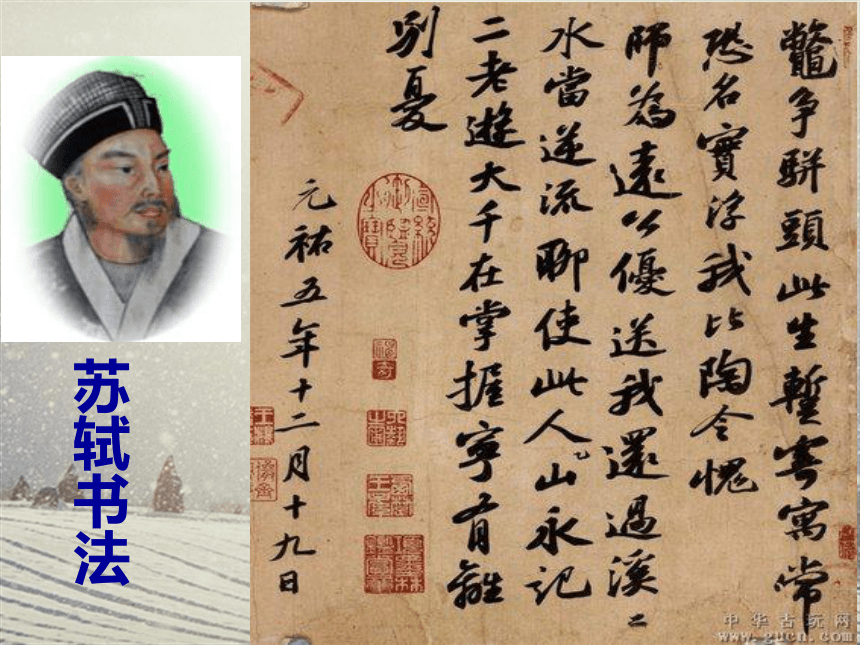 苏轼书法
鼈争駢頭此生暫寄寓常
恐名實浮我比陶令愧
師為遠公優送我還過溪二
水當逆流聊使此人山永記
二老遊大千在掌握寧有離
别憂
元祐五年十二月十九日
中华古玩网
www.gucn.com